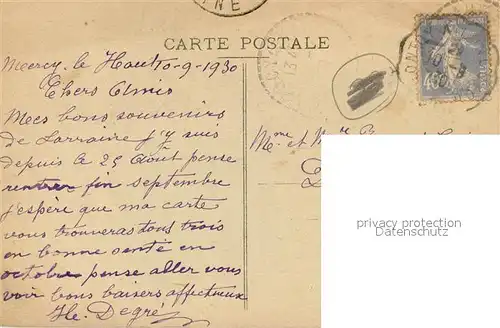 CARTE POSTALE
Mercy-le-Haut 10-9-1930
Chers Amis
Mes bons souvenirs
de Lorraine j'y suis
depuis le 25 Aout pense
rentrer fin septembre
j'espère que ma carte
vous trouveras tous trois
en bonne santé en
octobre pense aller vous
voir bons baisers affectueux
Hle. Degré
Mme et Mr
privacy protection
Datenschutz